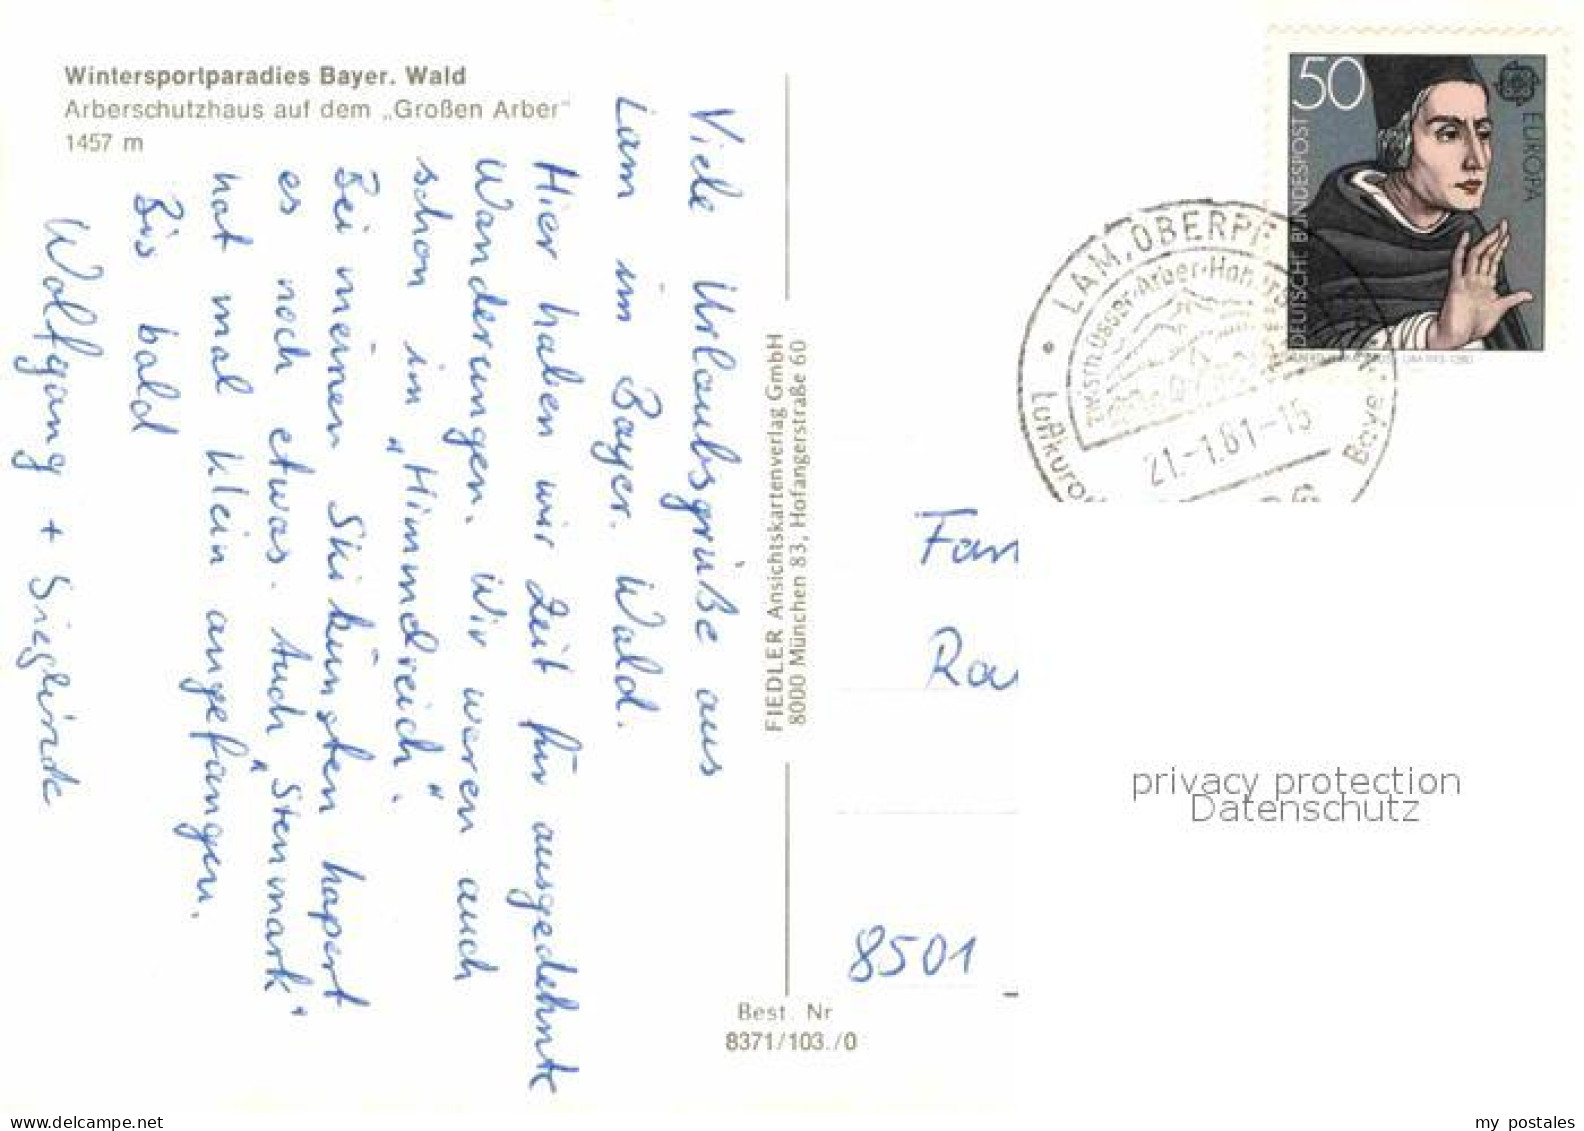 Wintersportparadies Bayer. Wald
Arberschutzhaus auf dem „Großen Arber"
1457 m
Viele Urlaubsgrüße aus
Lam im Bayer. Wald.
Hier haben wir Zeit für ausgedehnte
Wanderungen. Wir waren auch
schon im „Himmelreich".
Bei meinen Skikünsten hapert
es noch etwas. Auch „Stenmark"
hat mal klein angefangen.
Bis bald
Wolfgang + Sieglinde
FIEDLER Ansichtskartenverlag GmbH
8000 München 83, Hofangerstraße 60
Best. Nr
8371/103./0
50
DEUTSCHE BUNDESPOST
EUROPA
LAM, OBERPF
Osser-Arber-Hoh
21.-1.81-15
Luftkuror
Bayer
Fam
Ra
8501
privacy protection
Datenschutz
www.delcampe.net
my_postales